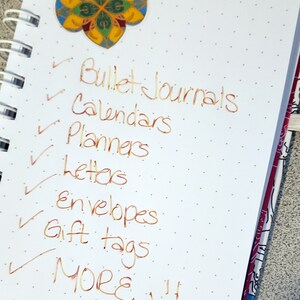 ✓ Bullet Journals
✓ Calendars
✓ Planners
✓ Letters
✓ Envelopes
✓ Gift tags
✓ MORE !!